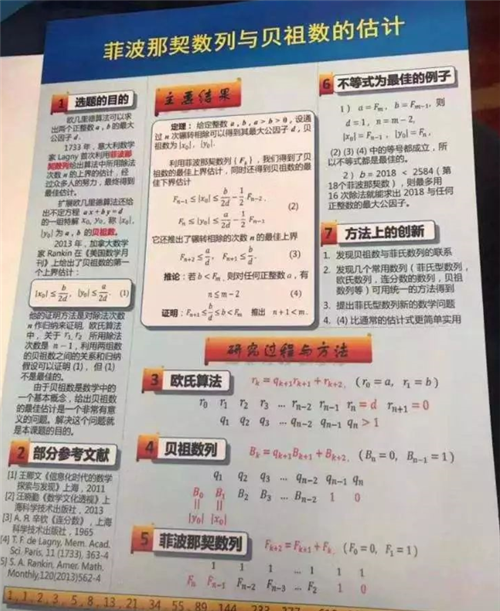 菲波那契数列与贝祖数的估计
1 选题的目的
欧几里德算法可以求
出两个正整数 a, b 的最大
公因子 d。
1733 年,意大利数学
家 Lagny 首次利用菲波那
契数列给出算法中所用除法
次数 n 的上界的估计,经
过众多人的努力,最终得到
最佳估计。
扩展欧几里德算法还给
出不定方程 ax + by = d
的一组特解 x₀, y₀, 称 |x₀|,
|y₀| 为 a, b 的贝祖数。
2013 年,加拿大数学
家 Rankin 在《美国数学月
刊》上给出了贝祖数的第一
个上界估计:
|x₀| ≤ b/2d, |y₀| ≤ a/2d (1)
他的证明方法是对除法次数
n 作归纳来证明, 欧氏算法
中,关于 r₁, r₂ 所用除法
次数是 n − 1,利用两组数
的贝祖数之间的关系和归纳
假设可以证明 (1), 但 (1)
不是最佳的。
由于贝祖数是数学中的
一个基本概念,给出贝祖数
的最佳估计是一个非常有意
义的问题。解决这个问题就
是本课题的目的。
2 部分参考文献
[1] 王
《信息化时代的数学
探索与发现》上海,2011
[2] 汪晓勤《数学文化透视》上
海科学技术出版社,2013
[3] А. Я. 辛钦《连分数》,上海
科学技术出版社,1965
[4] T. F. de Lagny, Mem. Acad.
Sci. Paris, 11 (1733), 363-4
[5] S. A. Rankin, Amer. Math.
Monthly,120(2013)562-4
主要结果
定理:给定整数 a, b, a > b > 0, 设通
过 n 次辗转相除可以得到其最大公因子 d, 贝
祖数为 |x₀|, |y₀|.
利用菲波那契数列 {Fₖ},我们得到了贝
祖数的最佳上界估计,同时还得到贝祖数的最
佳下界估计
Fₙ₋₁ ≤ |x₀| ≤ b/2d − 1/2 Fₙ₋₂,
(2)
Fₙ ≤ |y₀| ≤ a/2d − 1/2 Fₙ₋₁.
它还推出了辗转相除的次数 n 的最佳上界
Fₙ₊₂ ≤ a/d, Fₙ₊₁ ≤ b/d. (3)
推论:若 b < Fₘ, 则对任何正整数 a, 有
n ≤ m − 2 (4)
证明:Fₙ₊₁ ≤ b/d ≤ b < Fₘ 推出 n + 1 < m.
研究过程与方法
3 欧氏算法 rₖ = qₖ₊₁rₖ₊₁ + rₖ₊₂, (r₀ = a, r₁ = b)
r₀ r₁ r₂ r₃ … rₙ₋₂ rₙ₋₁ rₙ = d rₙ₊₁ = 0
q₁ q₂ q₃ … qₙ₋₂ qₙ₋₁ qₙ > 1
4 贝祖数列 Bₖ = qₖ₊₁Bₖ₊₁ + Bₖ₊₂, (Bₙ = 0, Bₙ₋₁ = 1)
q₁ q₂ q₃ … qₙ₋₂ qₙ₋₁ qₙ
B₀ B₁ B₂ B₃ … Bₙ₋₂ 1 0
|| ||
|y₀| |x₀|
5 菲波那契数列 Fₖ₊₂ = Fₖ₊₁ + Fₖ, (F₀ = 0, F₁ = 1)
1 1 1 … 1 1 1
Fₙ Fₙ₋₁ Fₙ₋₂ Fₙ₋₃ … F₂ 1 0
6 不等式为最佳的例子
1) a = Fₘ, b = Fₘ₋₁, 则
d = 1, n = m − 2,
|x₀| = Fₙ₋₁, |y₀| = Fₙ.
(2) (3) (4) 中的等号都成立,所
以不等式都是最佳的。
2) b = 2018 < 2584 (第
18个菲波那契数),则最多用
16 次除法就能求出 2018 与任何
正整数的最大公因子。
7 方法上的创新
1. 发现贝祖数与菲氏数列的联系
2. 发现几个常用数列(菲氏型数列,
欧氏数列,连分数的数列,贝祖
数列等)可用统一的方法得到
3. 提出菲氏型数列新的数学问题
4. (4) 比通常的估计式更简单实用
1, 1, 2, 3, 5, 8, 13, 21, 34, 55, 89, 144, 233, 377